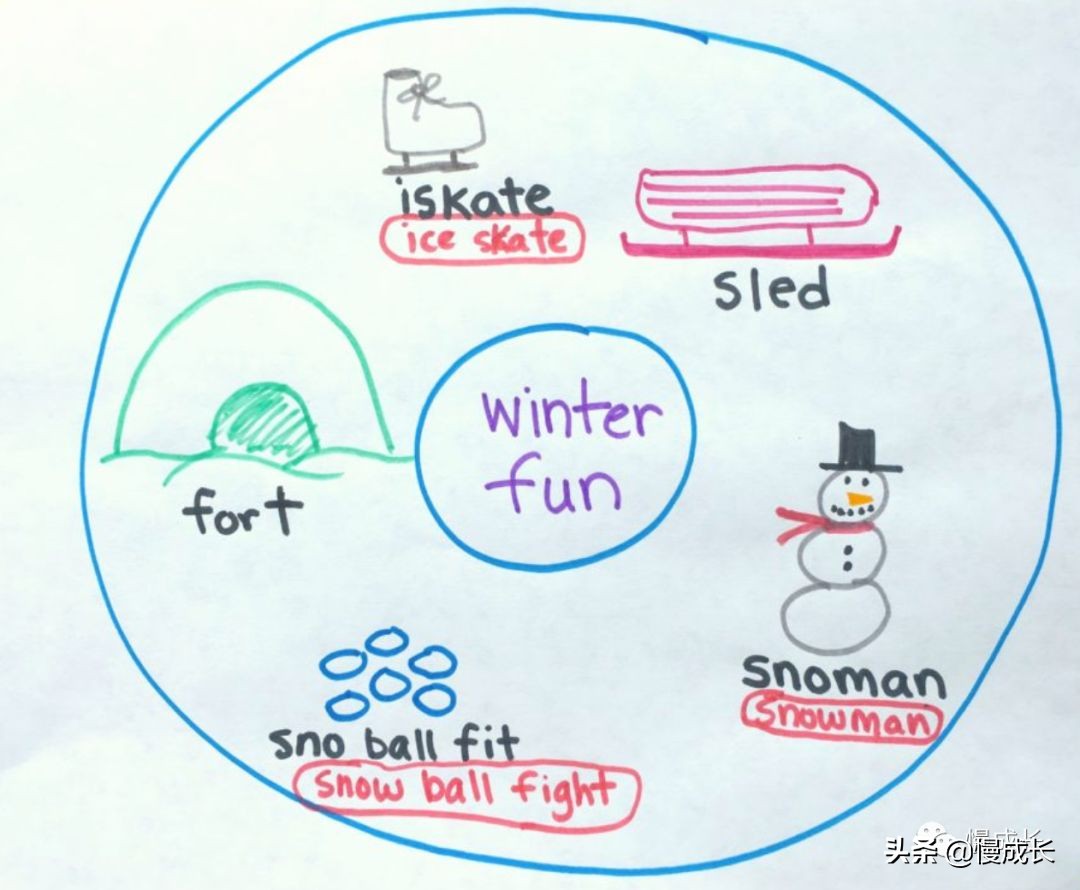 iskate
ice skate
sled
winter
fun
fort
snoman
snowman
sno ball fit
snow ball fight
慢成长
头条 @慢成长